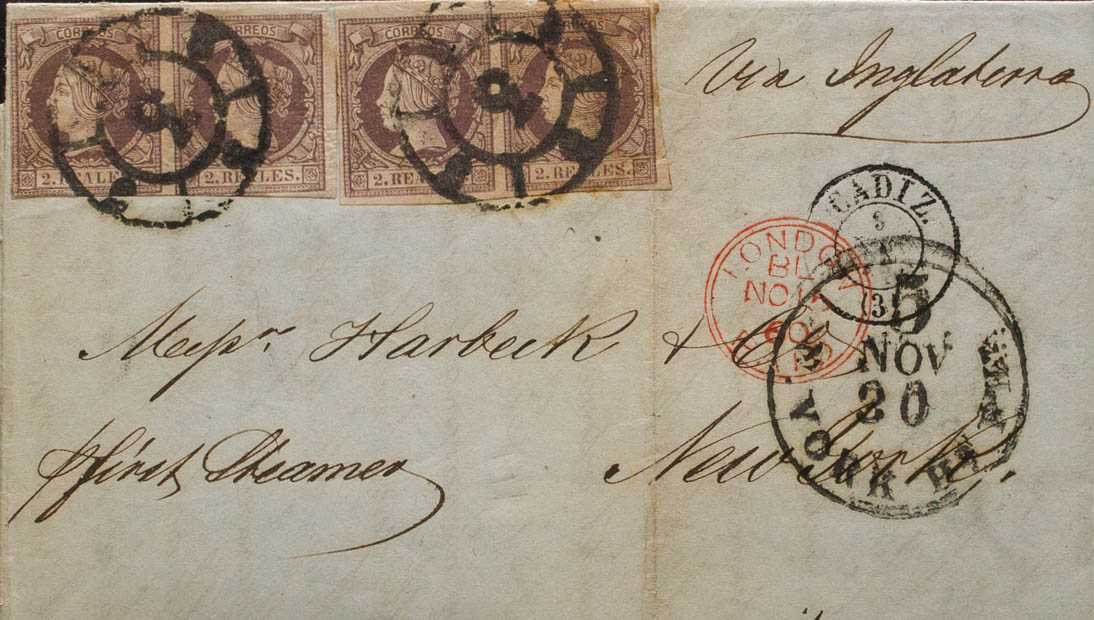 CORREOS CORREOS
2. REALES. 2. REALES. 2. REALES. 2. REALES.
Via Inglaterra
CADIZ.
LONDON
BL
NO
60
PAID
5
NOV
20
N. YORK BR. PKT.
Messrs. Harbeck & Co
New York.
pr first Steamer